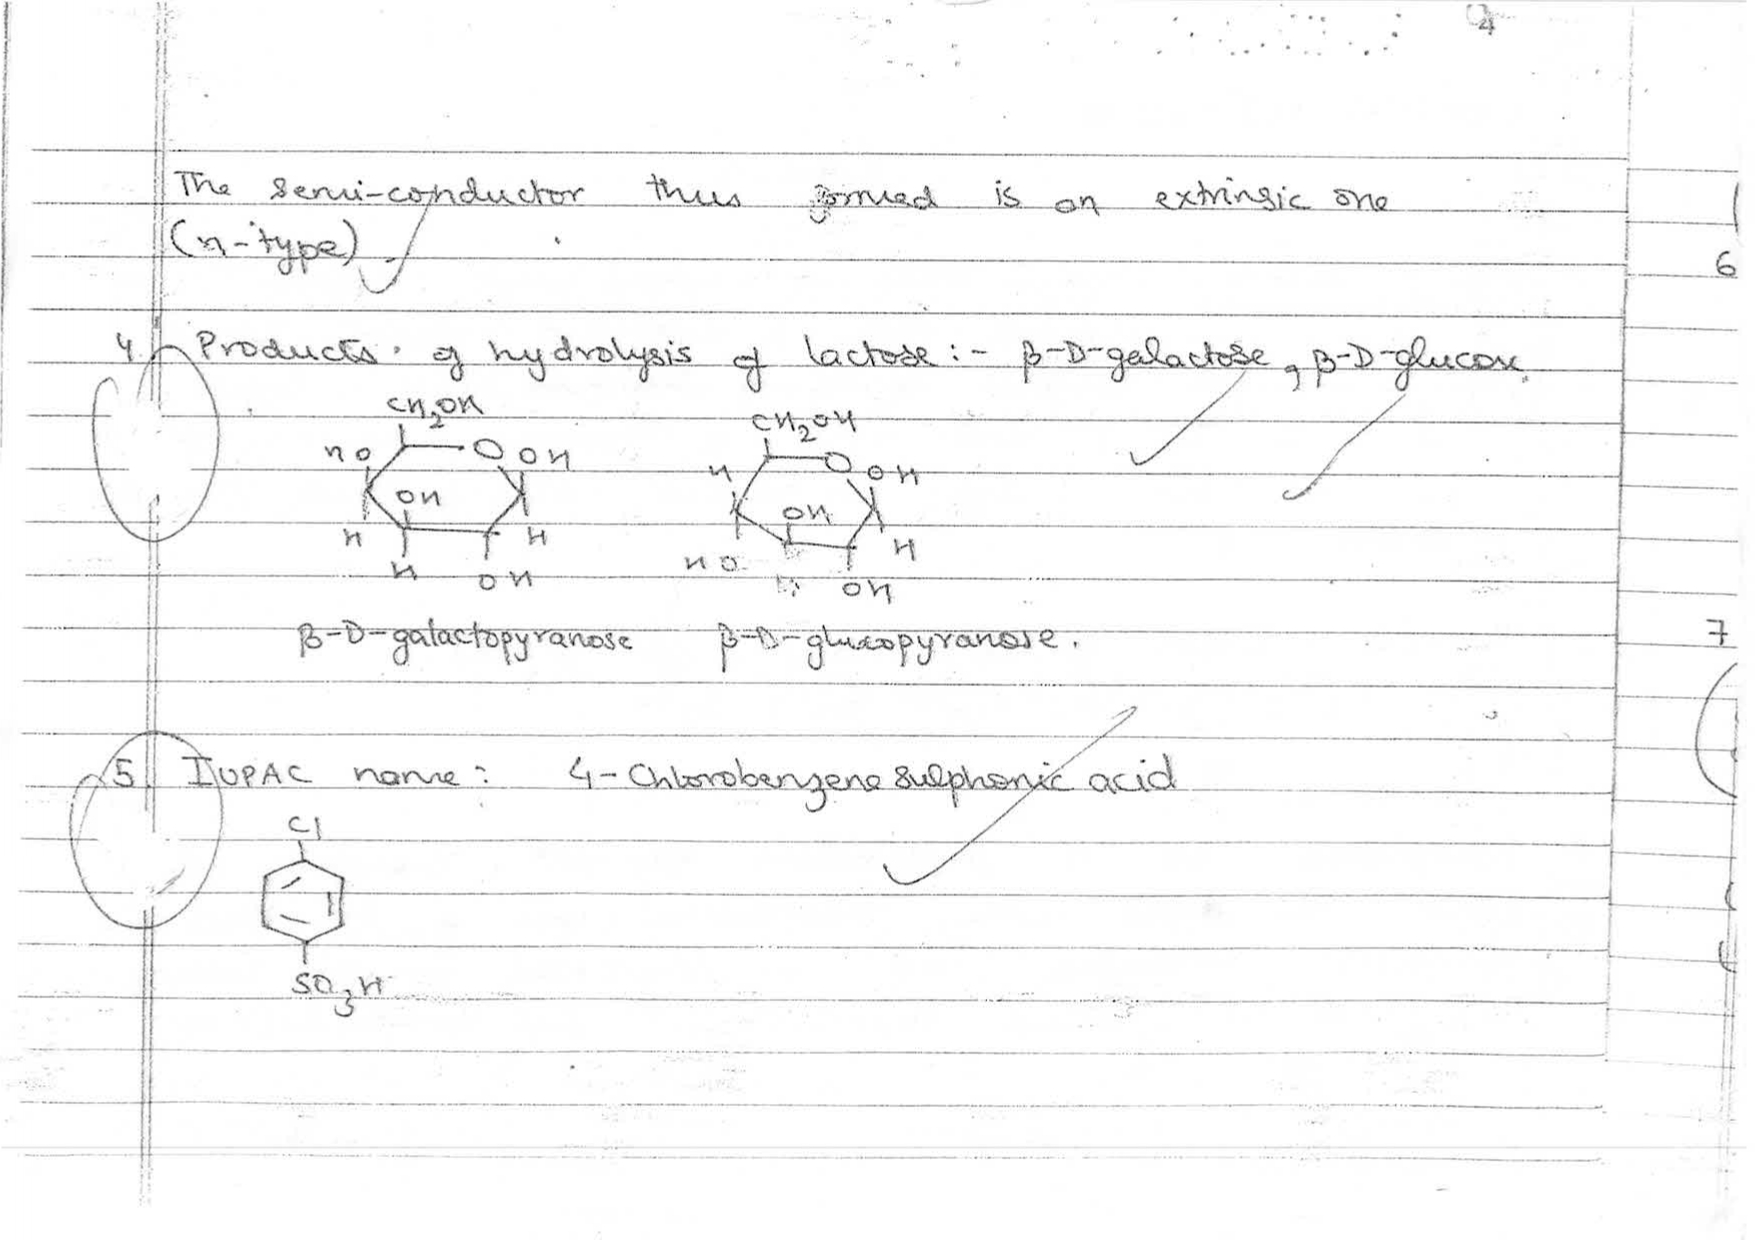 4
The semi-conductor thus formed is an extrinsic one
(n-type).
1
6
4. Products of hydrolysis of lactose :- β-D-galactose, β-D-glucose.
CH2OH CH2OH
HO O OH H O OH
OH OH
H H HO H
H OH H OH
β-D-galactopyranose β-D-glucopyranose.
7
5. IUPAC name: 4-Chlorobenzene sulphonic acid
Cl
SO3H